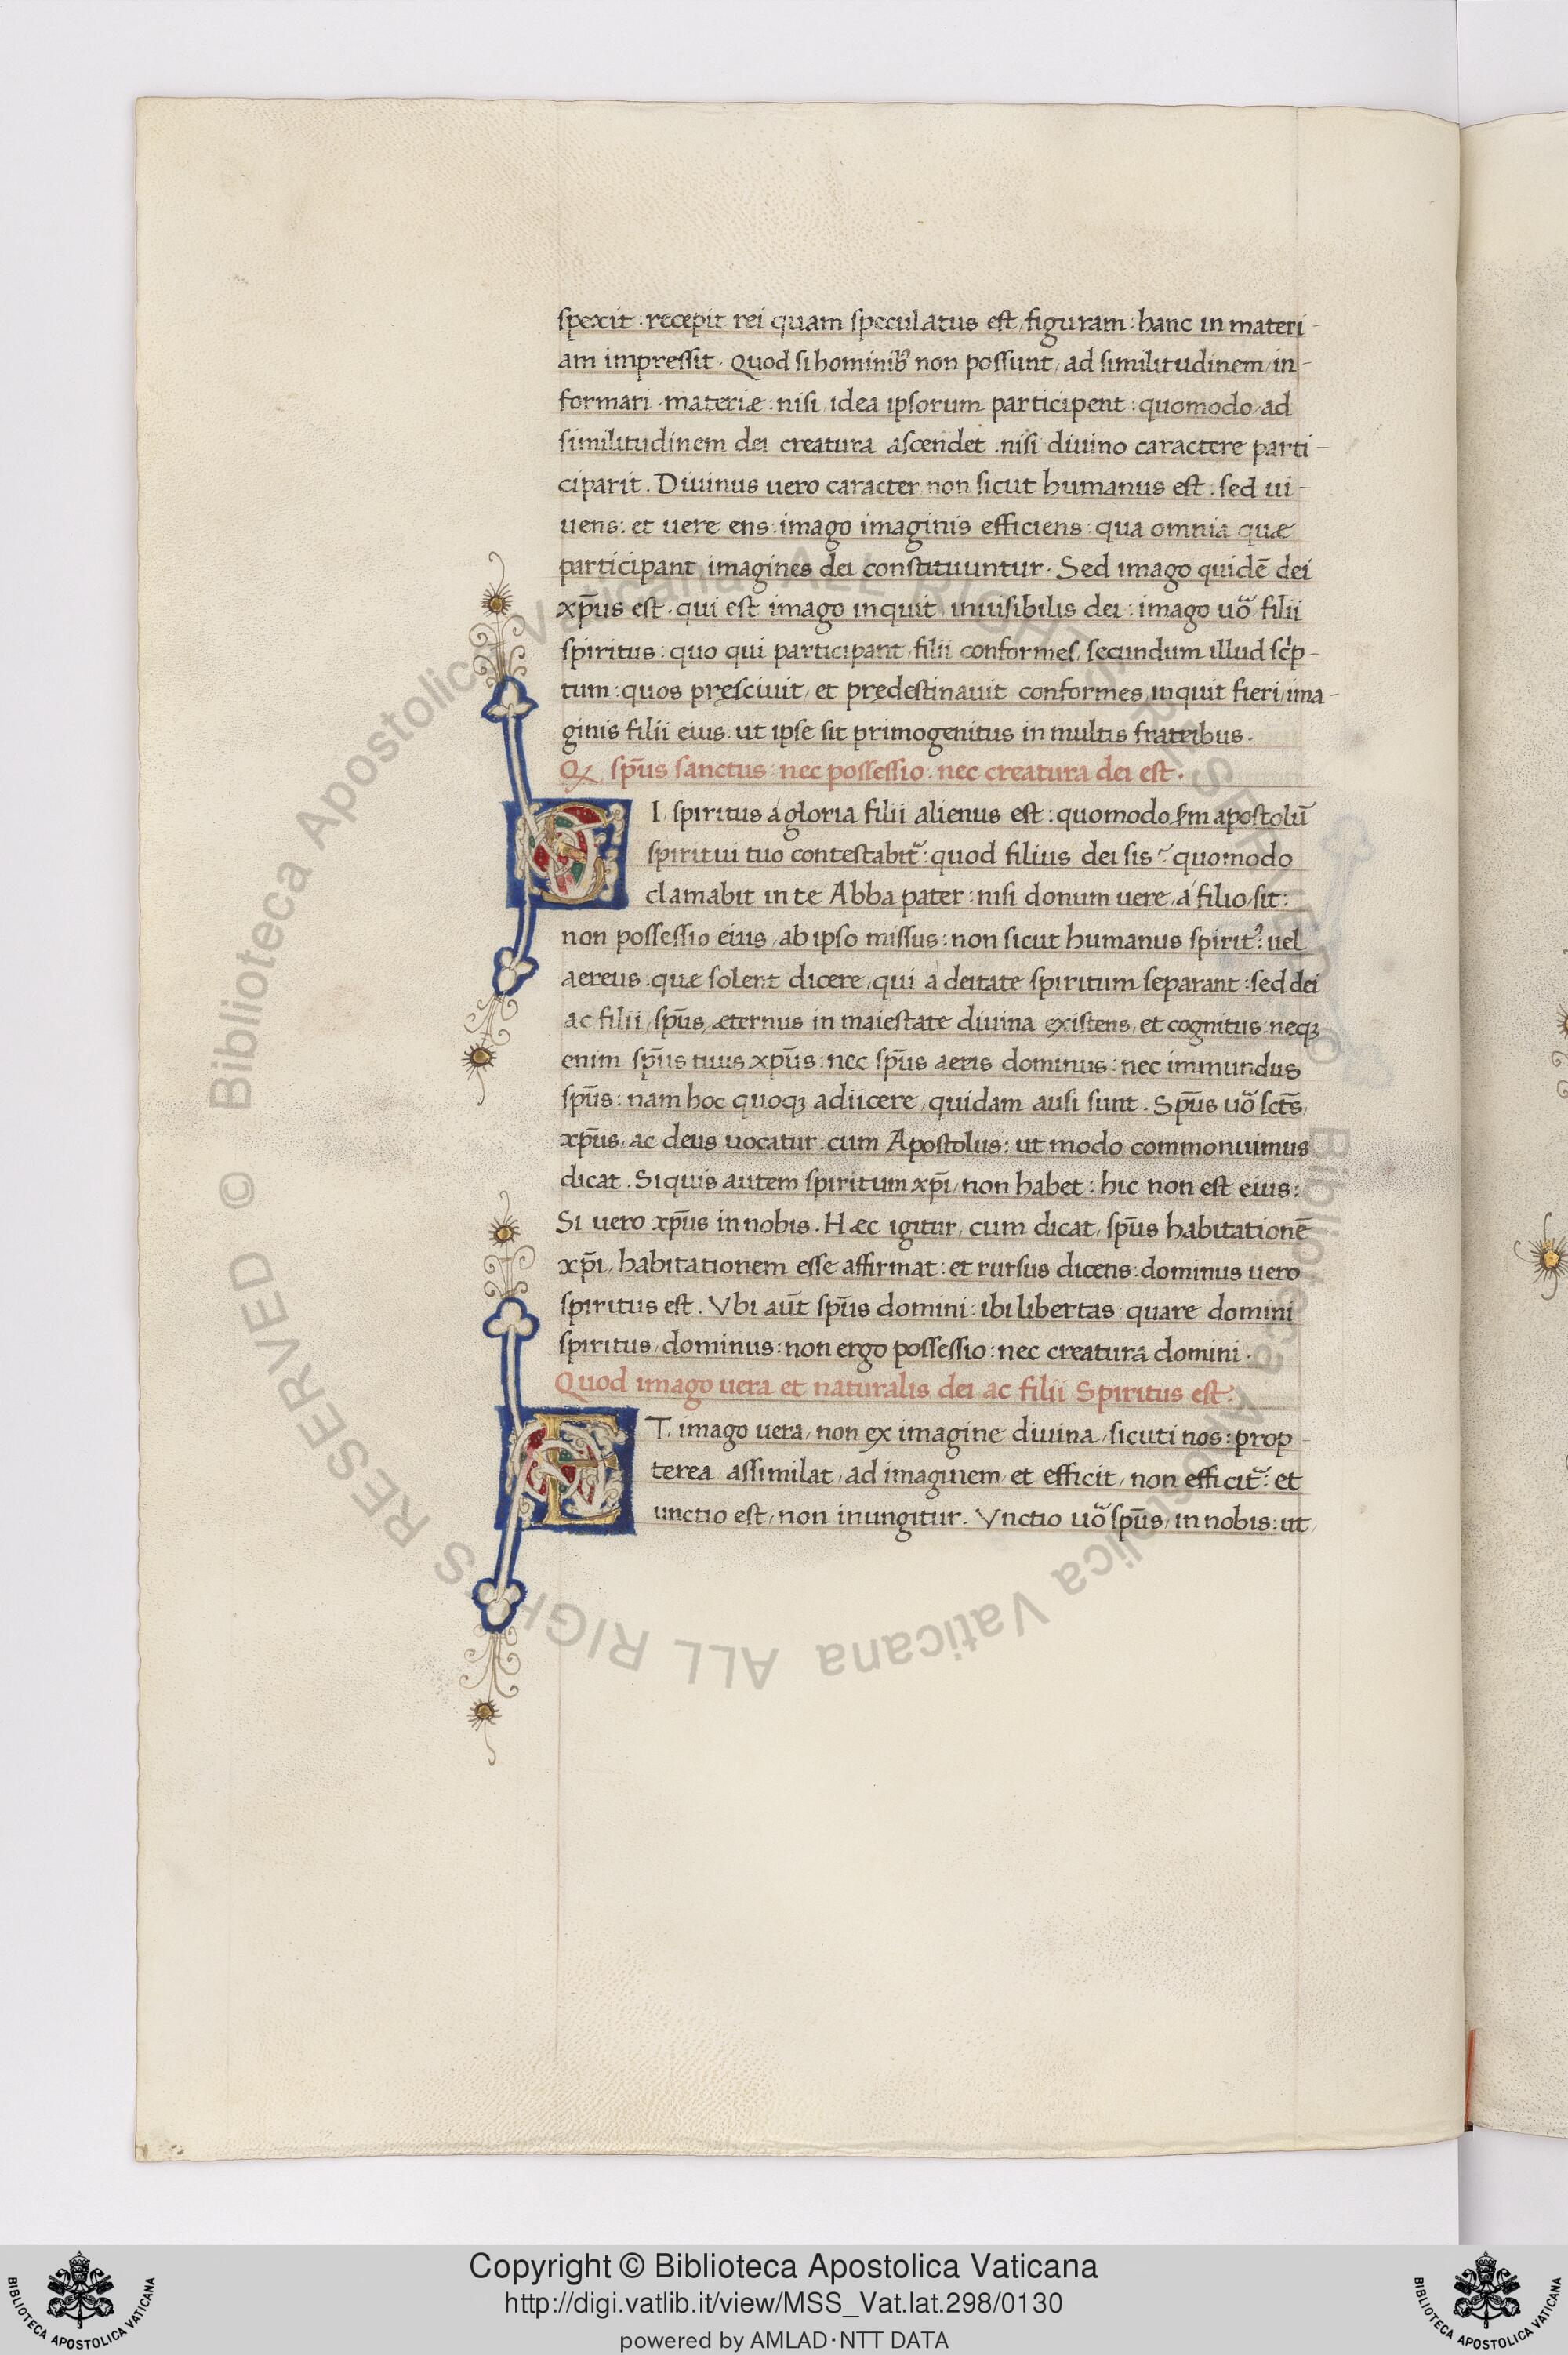 spexit : recepit rei quam speculatus est / figuram : hanc in materi-
am impressit . Quod si hominibꝰ non possunt / ad similitudinem / in-
formari . materiæ : nisi / idea ipsorum participent : quomodo / ad
similitudinem dei creatura ascendet . nisi diuino caractere parti-
ciparit . Diuinus uero caracter non sicut humanus est . sed ui-
uens : et uere ens : imago imaginis efficiens : qua omnia quæ
participant imagines dei constituuntur . Sed imago quidē dei
xp̄us est . qui est imago inquit inuisibilis dei : imago uo᷑ filii
spiritus : quo qui participant / filii conformes / secundum illud scͥp-
tum : quos pręsciuit / et prędestinauit conformes inquit fieri / ima-
ginis filii eius . ut ipse sit primogenitus in multis fratribus .
Qx sp̄us sanctus : nec possessio : nec creatura dei est .
SI spiritus a gloria filii alienus est : quomodo sm̄ apostolū
spiritui tuo contestabit᷑ : quod filius dei sis ? quomodo
clamabit in te Abba pater : nisi donum uere / a filio / sit :
non possessio eius / ab ipso missus : non sicut humanus spiritꝰ : uel
aereus . quæ solent dicere / qui a deitate spiritum separant : sed dei
ac filii / sp̄us / æternus in maiestate diuina existens / et cognitus : neqꝫ
enim sp̄us tuus xp̄us : nec sp̄us aeris dominus : nec immundus
sp̄us : nam hoc quoqꝫ adiicere / quidam ausi sunt . Sp̄us uo᷑ sct̄s /
xp̄us / ac deus uocatur . cum Apostolus : ut modo commonuimus
dicat . Siquis autem spiritum xp̄i / non habet : hic non est eius :
Si uero xp̄us in nobis . Hæc igitur / cum dicat / sp̄us habitationē
xp̄i / habitationem esse affirmat : et rursus dicens : dominus uero
spiritus est . Vbi aūt sp̄us domini : ibi libertas quare domini
spiritus / dominus : non ergo possessio : nec creatura domini .
Quod imago uera et naturalis dei ac filii Spiritus est .
ET imago uera / non ex imagine diuina / sicuti nos : prop-
terea assimilat / ad imaginem / et efficit / non efficit᷑ : et
unctio est / non inungitur . Vnctio uo᷑ sp̄us / in nobis : ut /
© Biblioteca Apostolica Vaticana ALL RIGHTS RESERVED
© Biblioteca Apostolica Vaticana ALL RIGHTS RESERVED
BIBLIOTECA APOSTOLICA VATICANA
Copyright © Biblioteca Apostolica Vaticana
http://digi.vatlib.it/view/MSS_Vat.lat.298/0130
powered by AMLAD·NTT DATA
BIBLIOTECA APOSTOLICA VATICANA